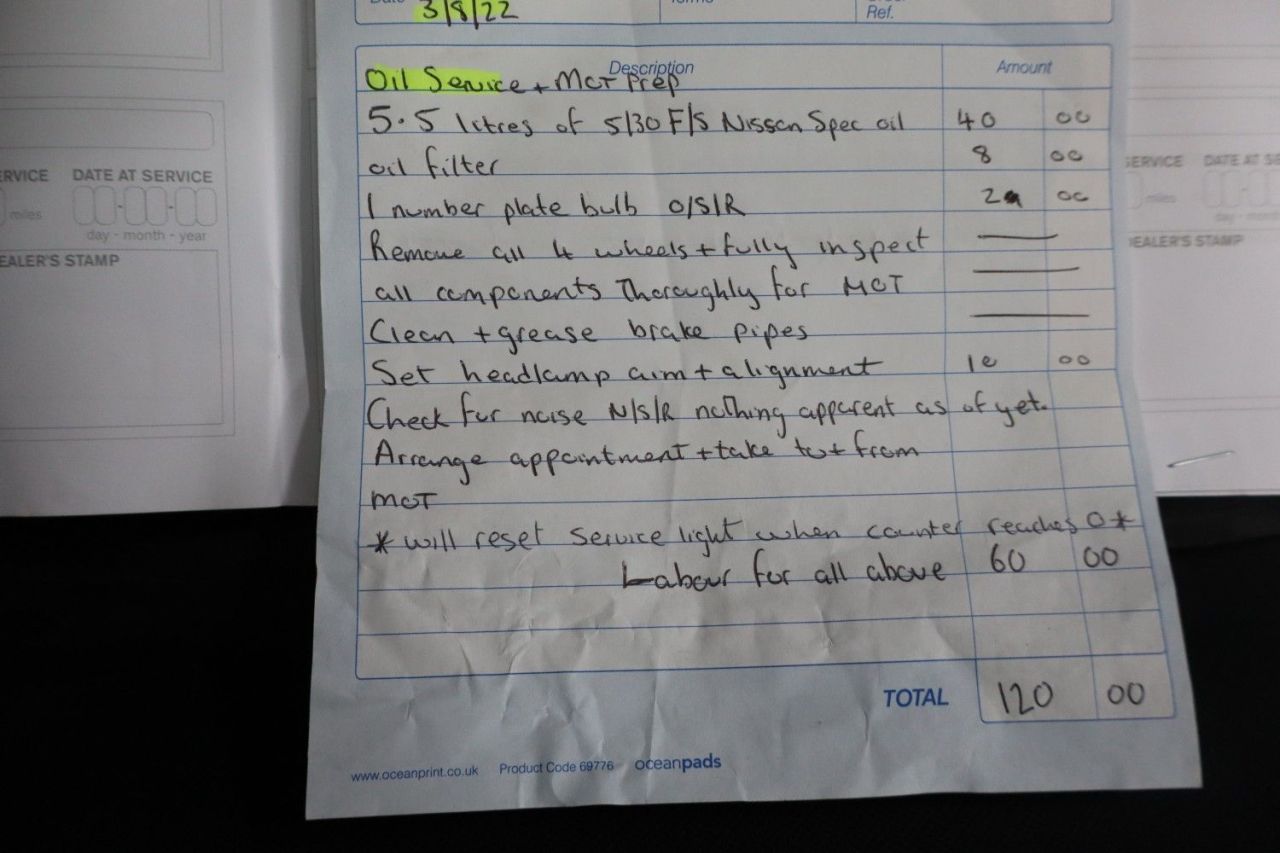 3/8/22
Ref.
Description Amount
Oil Service + MOT Prep
5.5 litres of 5/30 F/S Nissan Spec oil 40 00
oil filter 8 00
1 number plate bulb O/S/R 2 00
Remove all 4 wheels + fully inspect
all components Thoroughly for MOT
Clean + grease brake pipes
Set headlamp aim + alignment 10 00
Check for noise N/S/R nothing apparent as of yet.
Arrange appointment + take to + from
MOT
* will reset service light when counter reaches 0 *
Labour for all above 60 00
TOTAL 120 00
www.oceanprint.co.uk Product Code 69776 oceanpads
SERVICE DATE AT SERVICE
miles
day - month - year
DEALER'S STAMP
SERVICE DATE AT SE
miles
DEALER'S STAMP